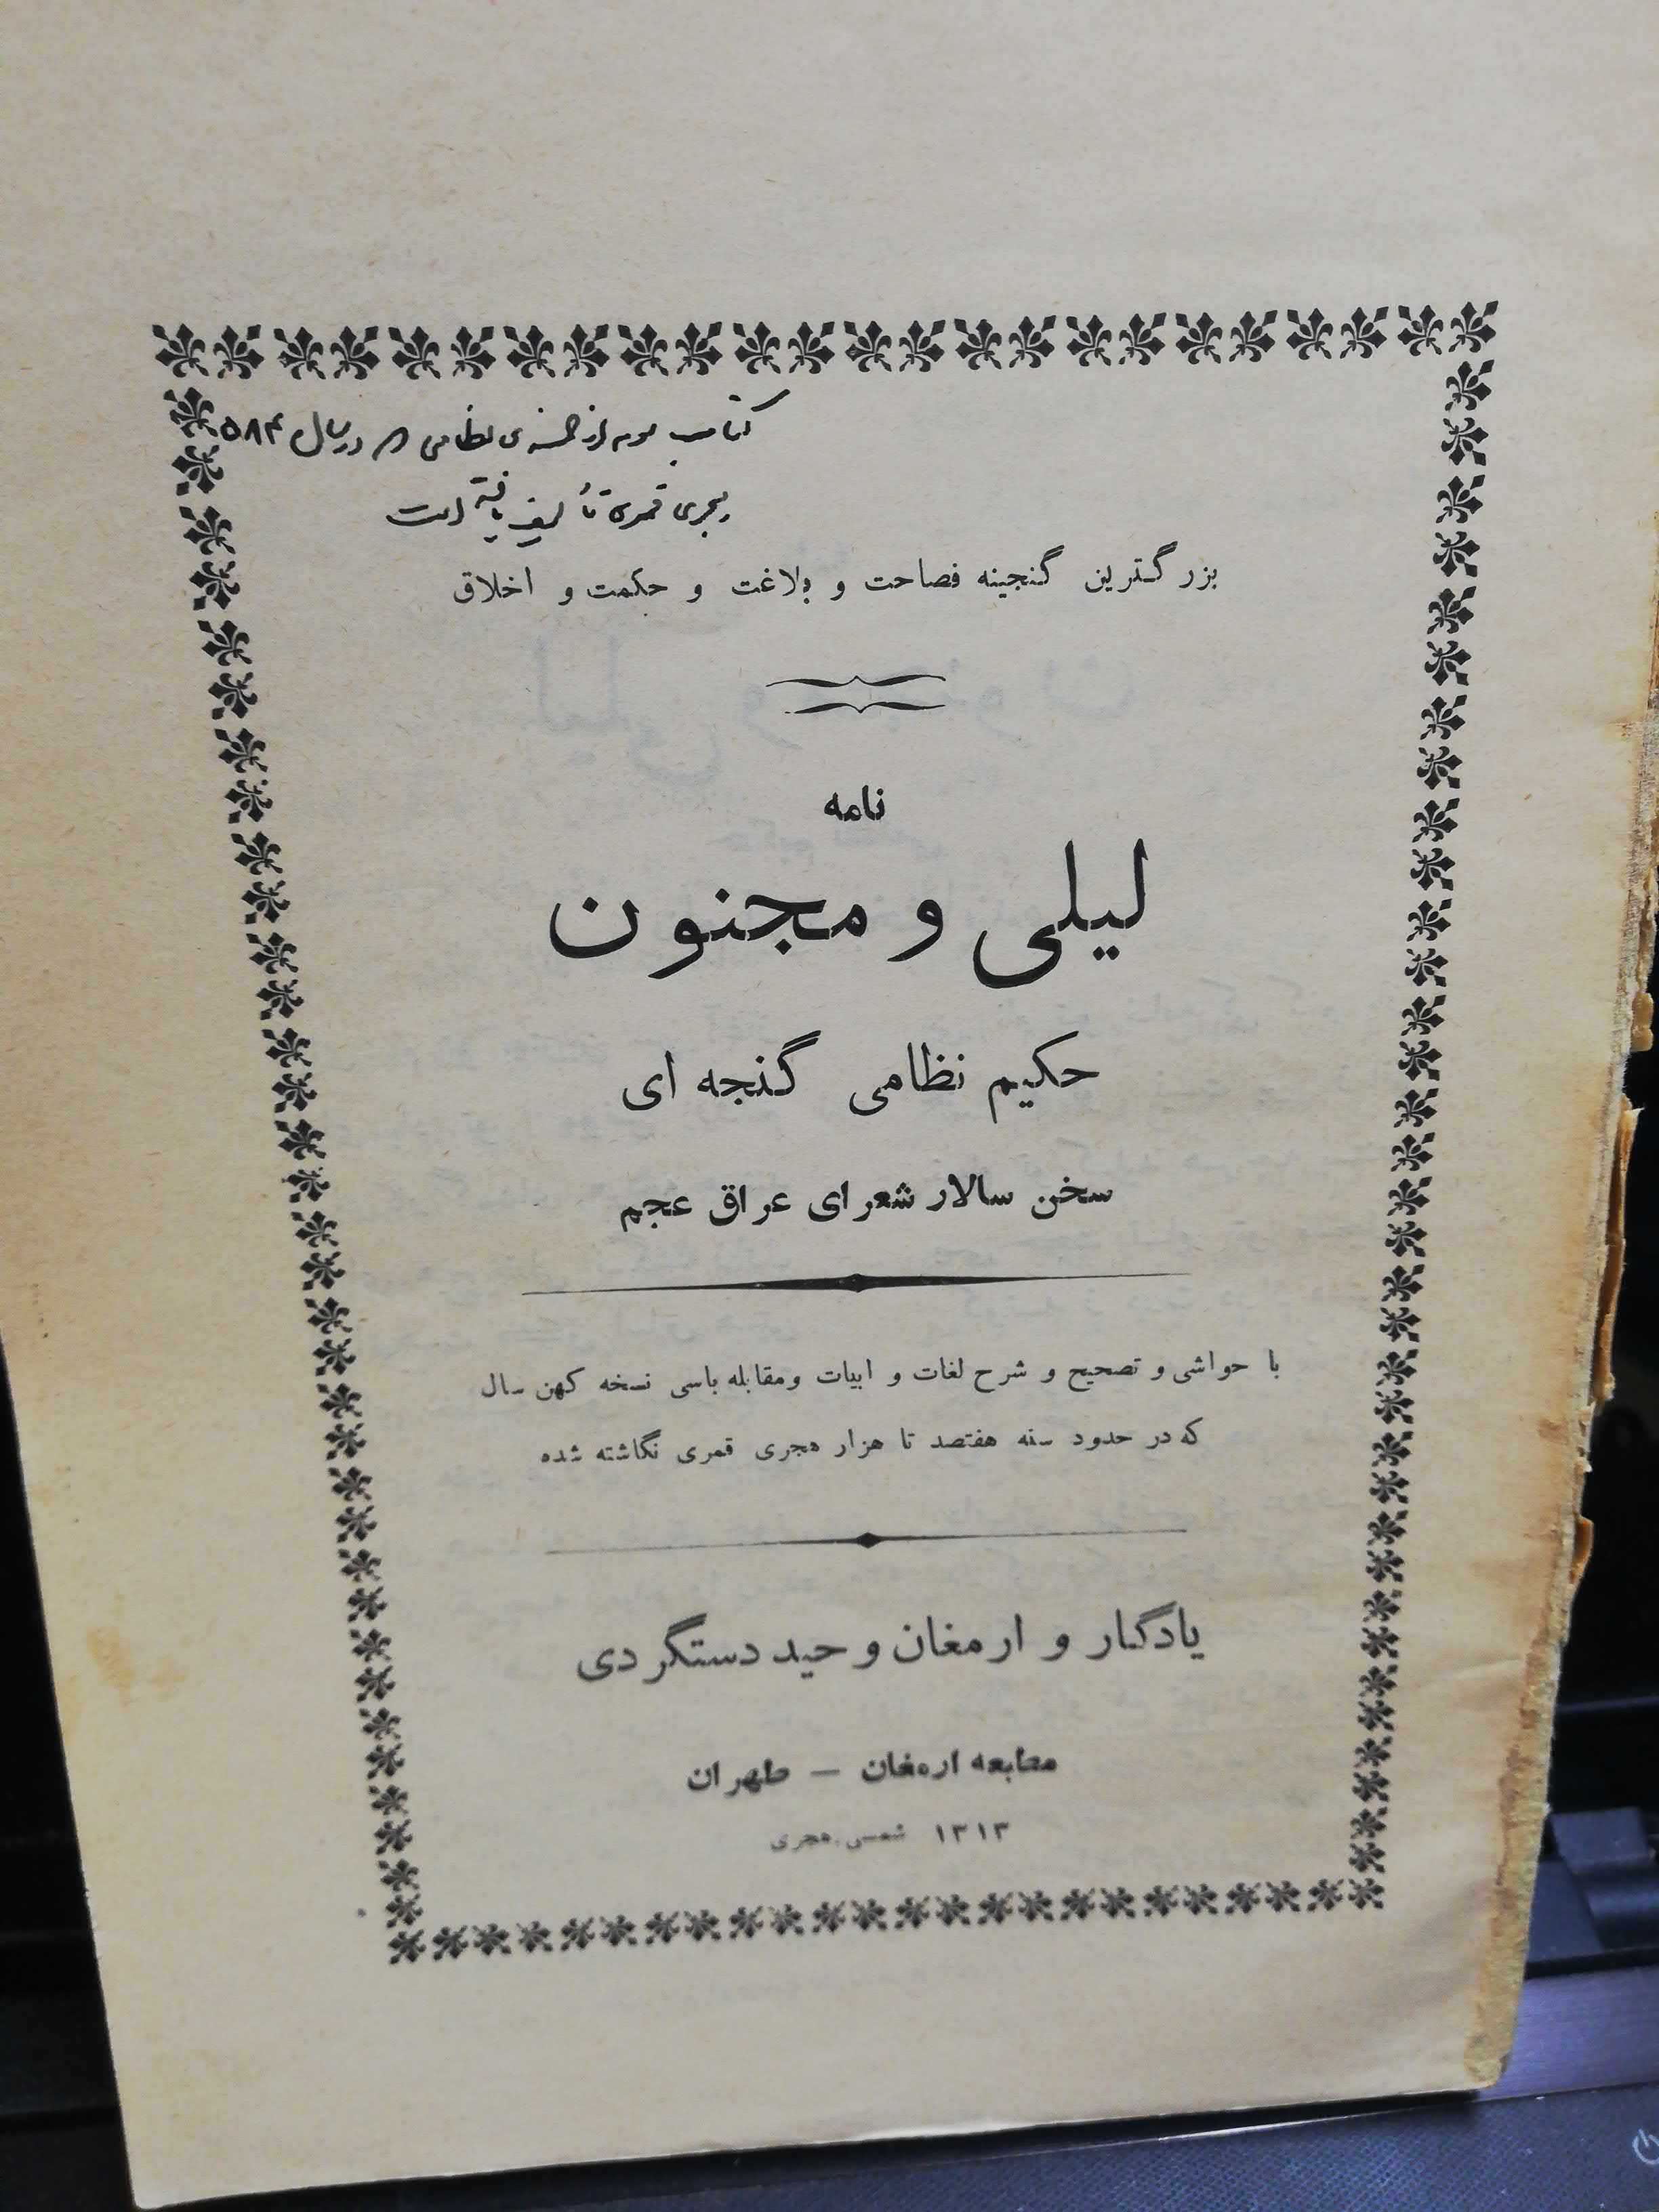 کتاب سوم از خمسه ی نظامی در سال ۵۸۴
هجری قمری تألیف یافته است
بزرگترین گنجینه فصاحت و بلاغت و حکمت و اخلاق
نامه
لیلی و مجنون
حکیم نظامی گنجه ای
سخن سالار شعرای عراق عجم
با حواشی و تصحیح و شرح لغات و ابیات ومقابله باسی نسخه کهن سال
که در حدود سنه هفتصد تا هزار هجری قمری نگاشته شده
یادگار و ارمغان وحید دستگردی
مطبعه ارمغان — طهران
۱۳۱۳ شمسی هجری